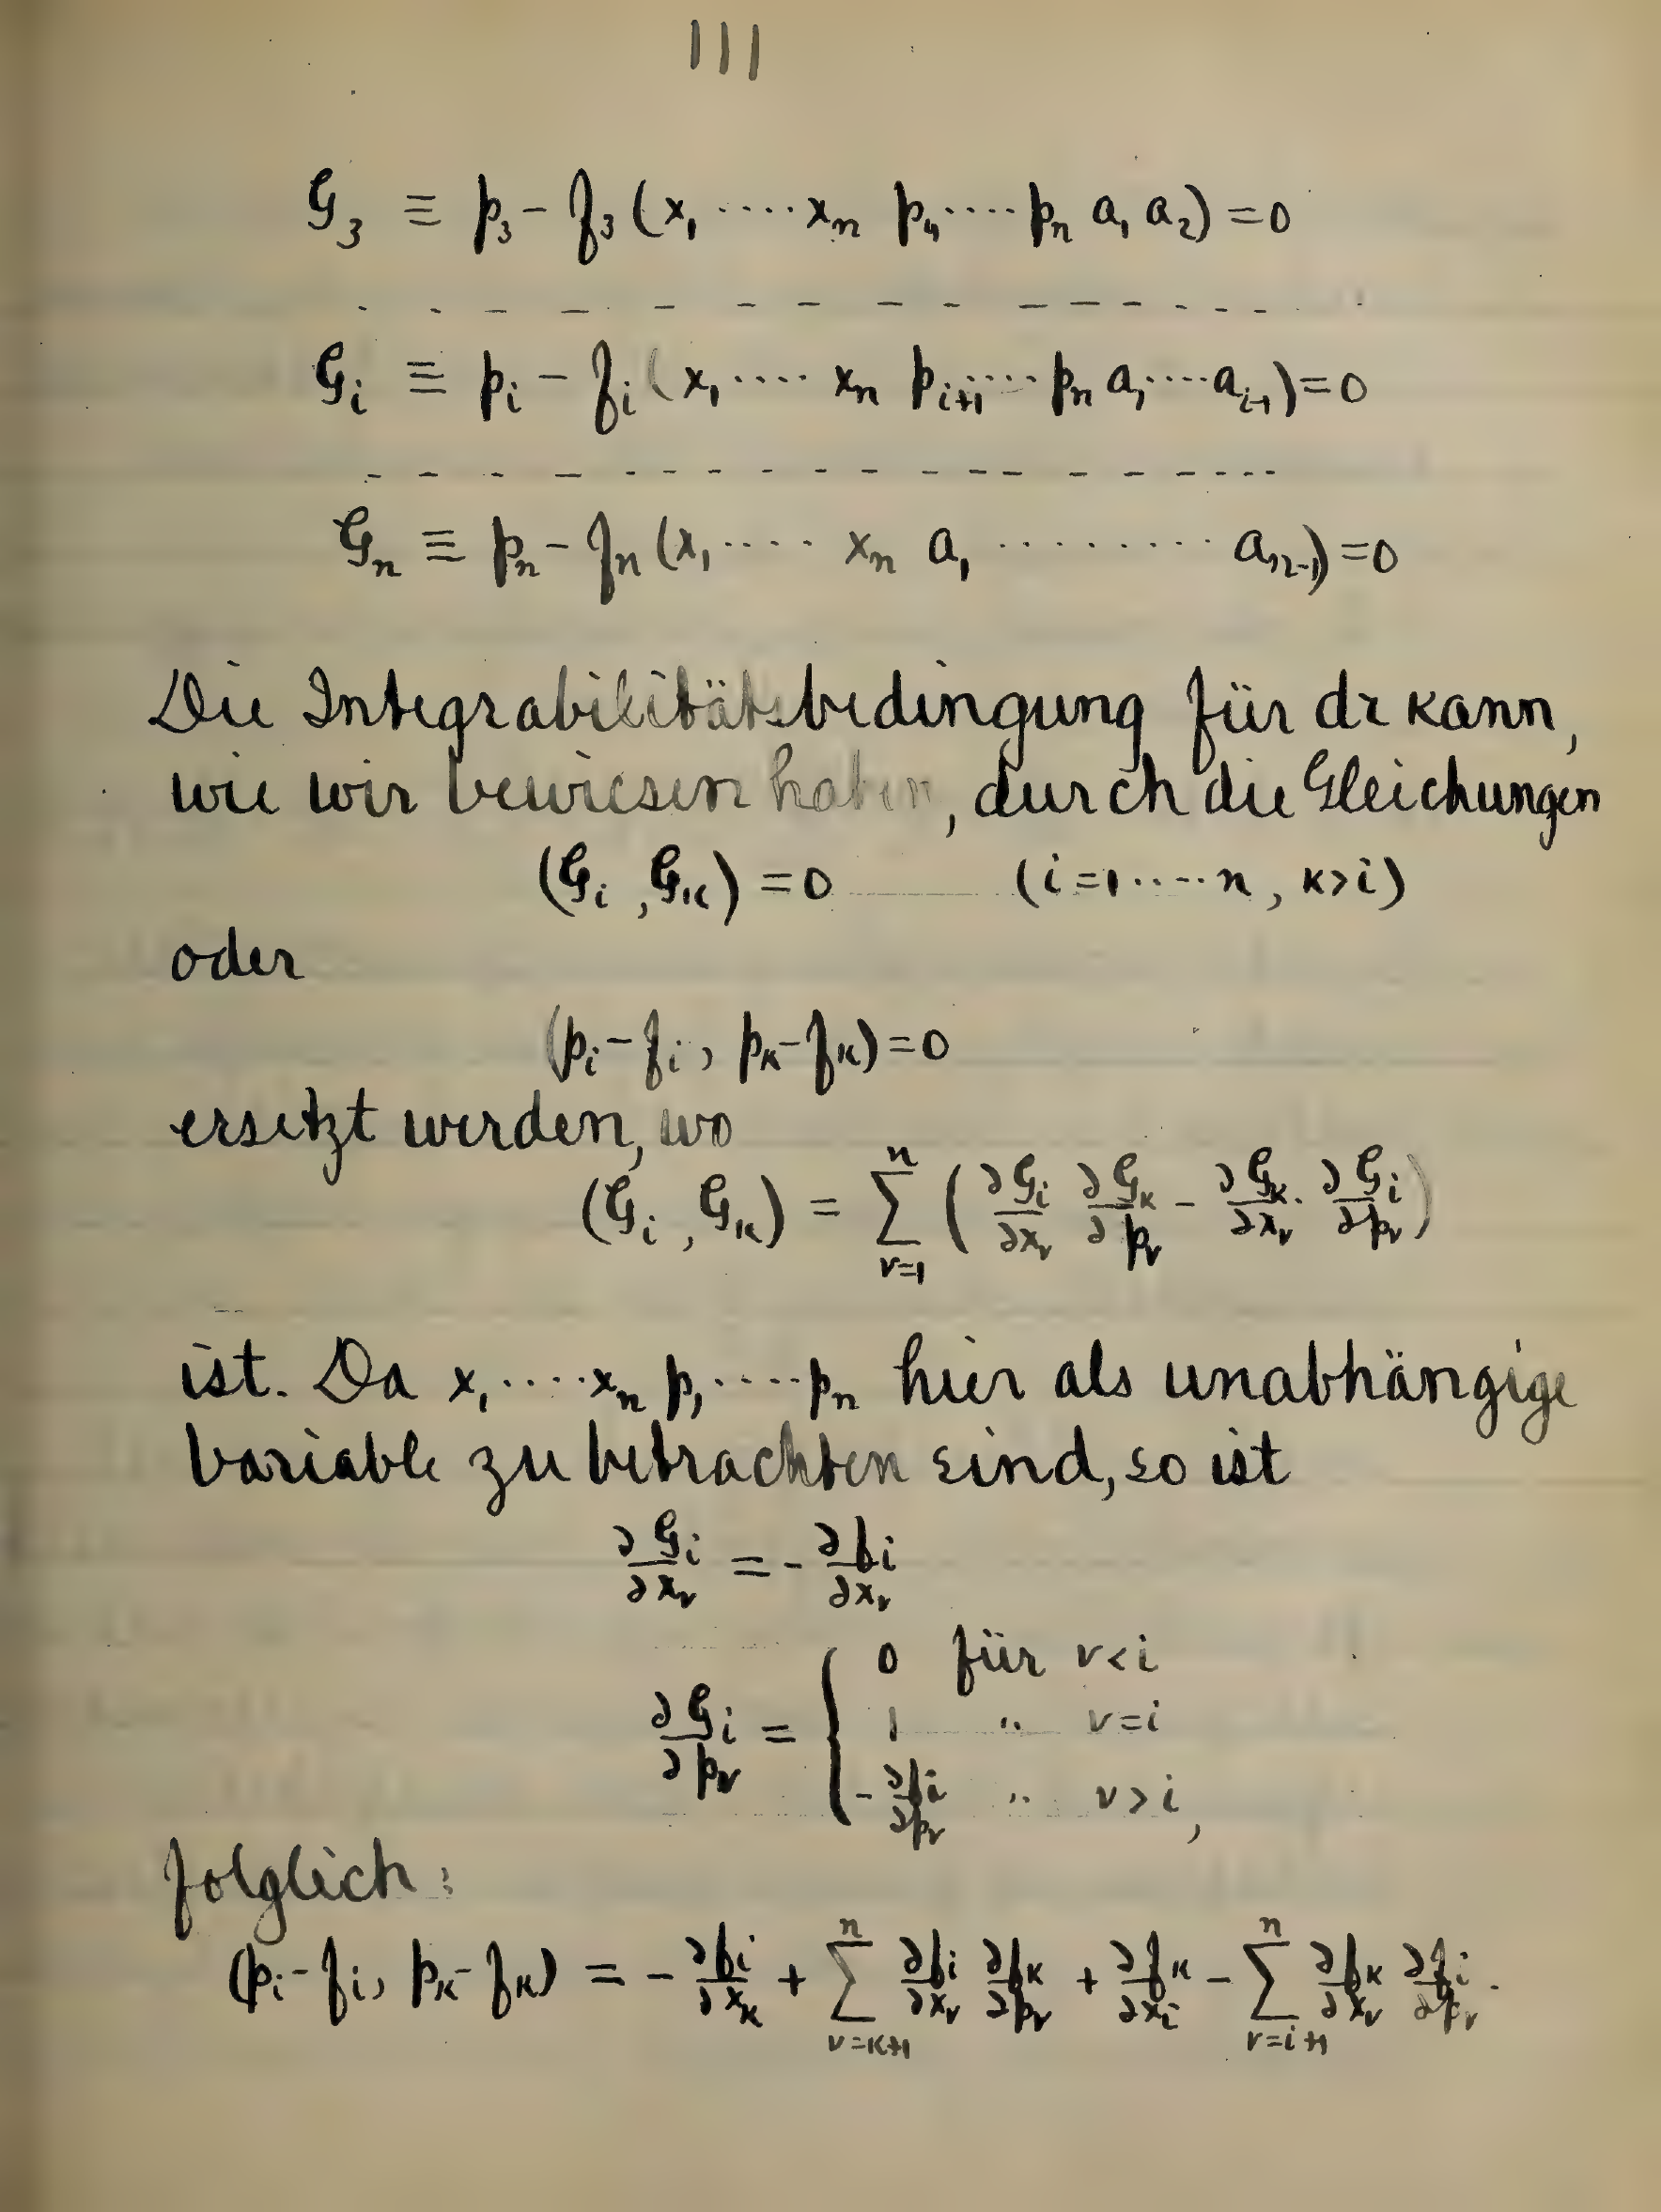 111
G₃ ≡ p₃ - f₃ (x₁ ····· xₙ p₄ ····· pₙ a₁ a₂) = 0
- - - - - - - - - - - - - - -
Gᵢ ≡ pᵢ - fᵢ (x₁ ···· xₙ pᵢ₊₁ ····· pₙ a₁ ···· aᵢ₋₁) = 0
- - - - - - - - - - - - - - -
Gₙ ≡ pₙ - fₙ (x₁ ····· xₙ a₁ ········· aₙ₋₁) = 0
Die Integrabilitätsbedingung für dz kann,
wie wir bewiesen haben, durch die Gleichungen
(Gᵢ, Gκ) = 0 (i = 1 ····· n, κ > i)
oder
(pᵢ - fᵢ, pκ - fκ) = 0
ersetzt werden, wo
(Gᵢ, Gκ) = ∑_{ν=1}^{n} (∂Gᵢ/∂x_ν ∂Gκ/∂p_ν - ∂Gκ/∂x_ν · ∂Gᵢ/∂p_ν)
ist. Da x₁ ····· xₙ p₁ ····· pₙ hier als unabhängige
Variable zu betrachten sind, so ist
∂Gᵢ/∂x_ν = - ∂fᵢ/∂x_ν
∂Gᵢ/∂p_ν = { 0 für ν < i
1 " ν = i
- ∂fᵢ/∂p_ν " ν > i,
folglich:
(pᵢ - fᵢ, pκ - fκ) = - ∂fᵢ/∂xκ + ∑_{ν=κ+1}^{n} ∂fᵢ/∂x_ν ∂fκ/∂p_ν + ∂fκ/∂xᵢ - ∑_{ν=i+1}^{n} ∂fκ/∂x_ν ∂fᵢ/∂p_ν.